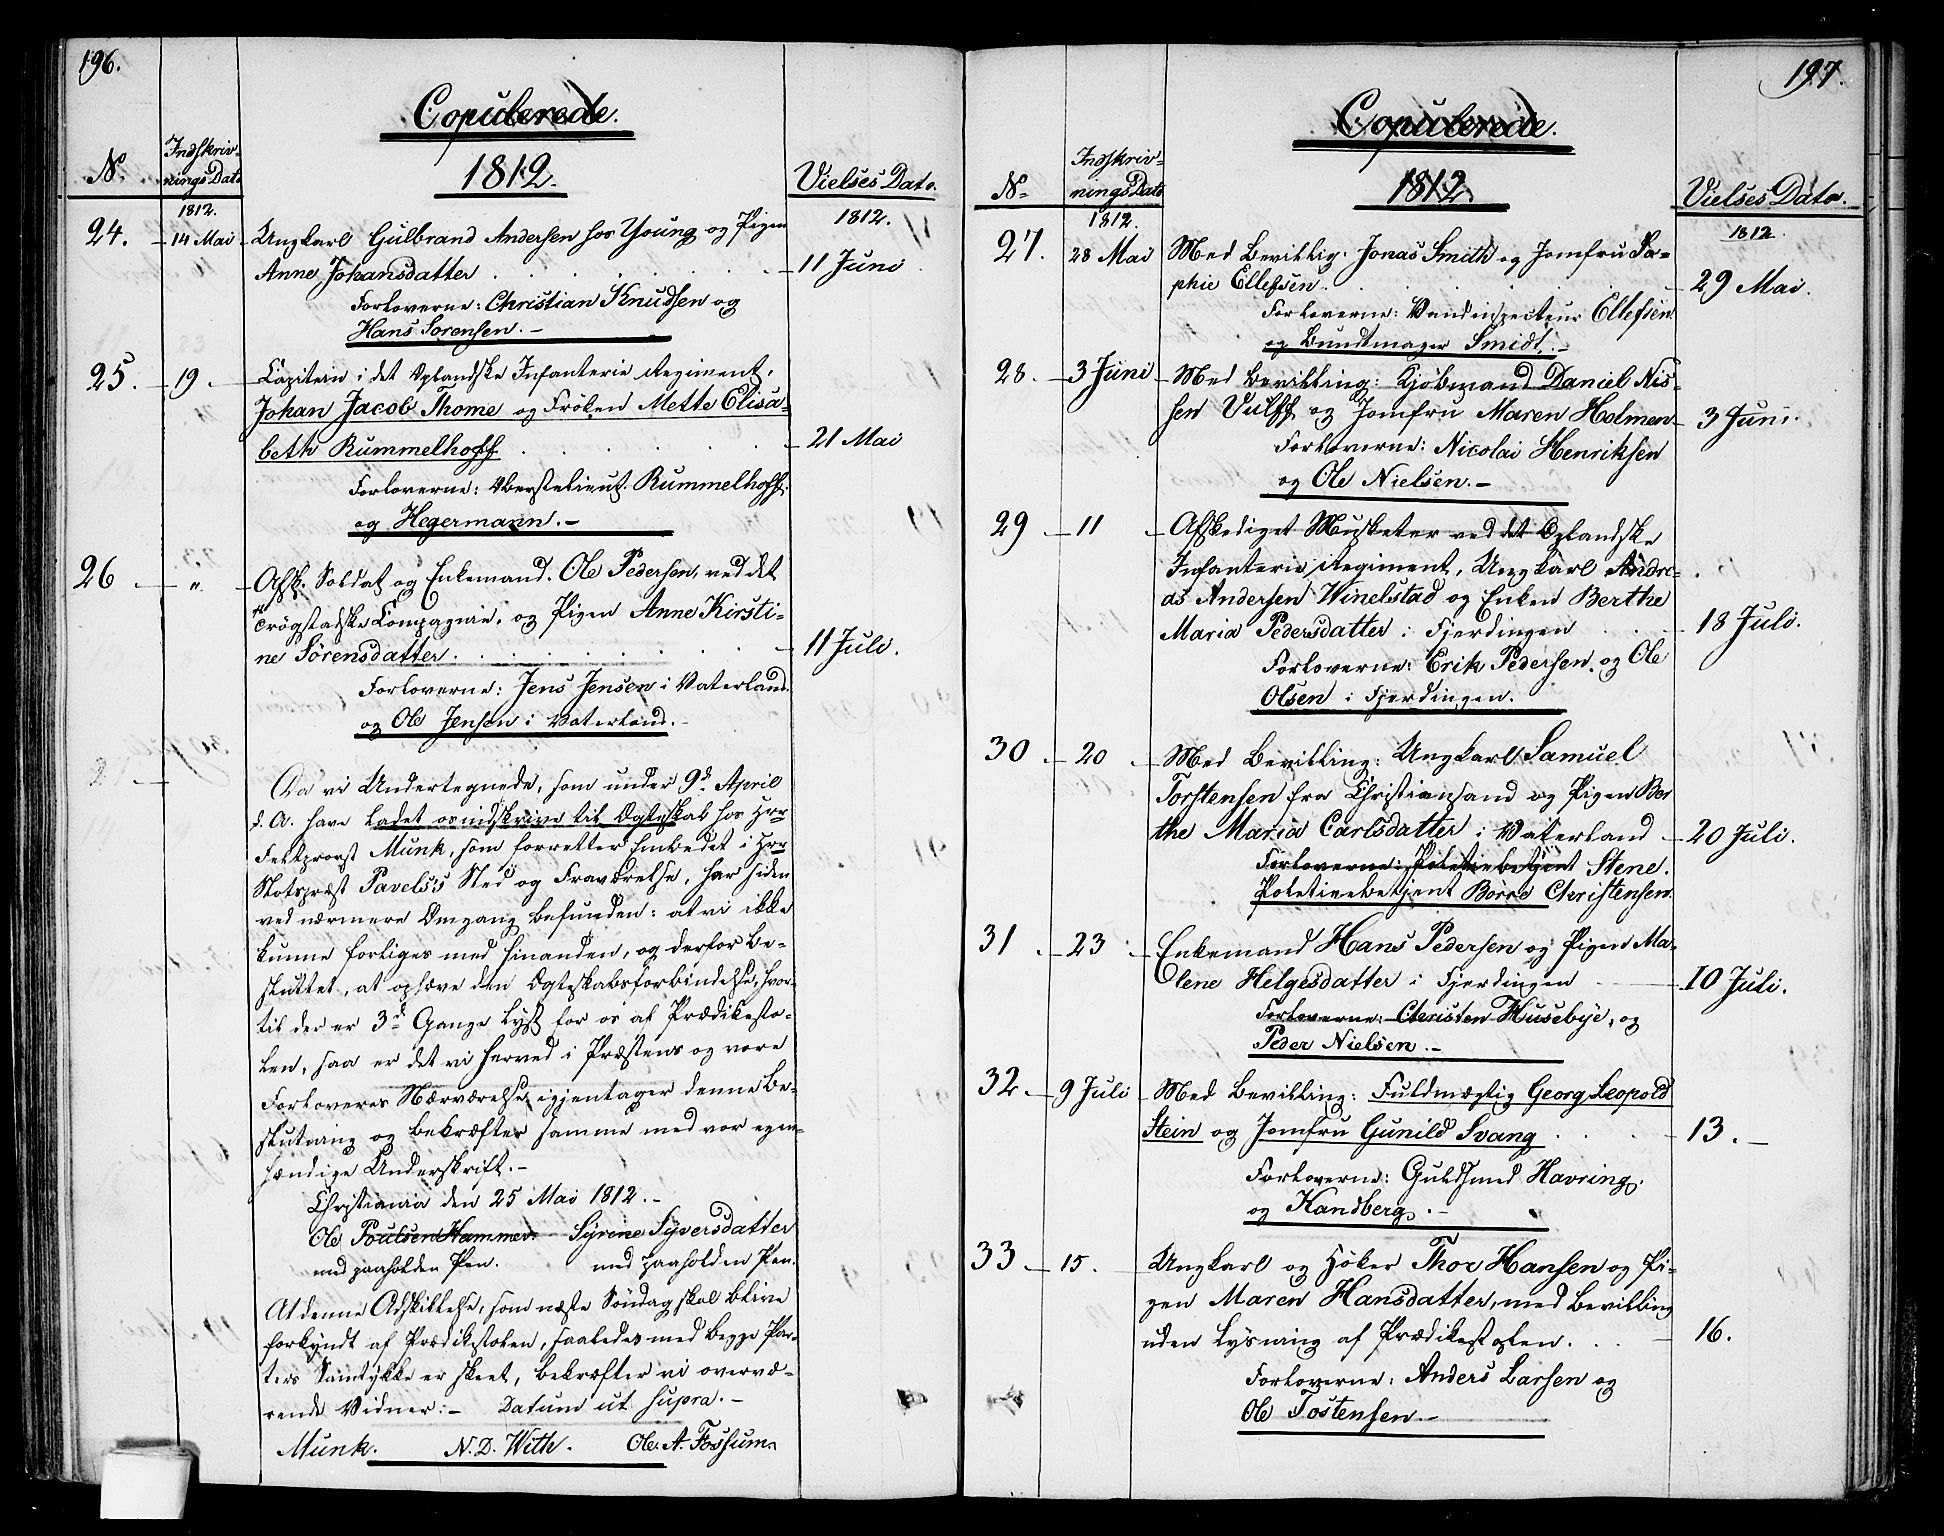 196.
Copulerede.
1812.
No.
Indskriv-
nings Dato
Vielses Dato.
1812.
1812.
24. 14 Mai Ungkarl Gulbrand Andersen hos Young og Pigen
Anne Johansdatter 11 Juni
Forloverne: Christian Knudsen og
Hans Sorensen.-
25. 19. Capitein i det Oplandske Infanterie Regiment,
Johan Jacob Thome og Frøken Mette Elisa-
beth Rummelhoff 21 Mai
Forloverne: Oberstelieut. Rummelhoff.
og Hegermann.-
26 " Afsk. Soldat og Enkemand. Ole Pedersen, ved det
Trögstadske Compagnie, og Pigen Anne Kirsti-
ne Sörensdatter 11 Juli.
Forloverne: Jens Jensen i Vaterland.
og Ole Jensen i Vaterland.-
Da vi Undertegnede, som under 9d. April
d. A. have ladet os indskrive til Ægteskab hos Hrr
Feltprovst Munk, som forretter Embedet i Hrr
Slotspræst Pavels's Sted og Fraværelse, har siden
ved nærmere Omgang befunden: at vi ikke
kunne forliges med hinanden, og derfor be-
sluttet, at ophæve den Ægteskabsforbindelse, hvor-
til der er 3de Gange lyst for os af Prædikesto-
len, saa er det vi herved i Præstens og vore
Forloveres Nærværelse igjentager denne Be-
slutning og bekræfter samme med vor egen-
hændige Underskrift.-
Christiania den 25 Mai 1812.-
Ole Poulsen Hammer. Syrine Syversdatter
med paaholden Pen. med paaholden Pen.
At denne Adskillelse, som næste Söndag skal blive
forkyndt af Prædikestolen, saaledes med begge Par-
ters Samtykke er skeet, bekræfter vi overvæ-
rende Vidner:- Datum ut supra.-
Munk. N. D. With. Ole A. Fossum.
197.
Copulerede.
1812.
No.
Indskriv-
nings Dato
Vielses Dato.
1812.
1812.
27. 28 Mai Med Bevilling: Jonas Smith og Jomfru So-
phie Ellefsen. 29 Mai.
Forloverne: Vandinspecteur Ellefsen
og Bundtmager Smidt.-
28. 3 Juni Med Bevilling: Kjöbmand Daniel Nis-
sen Vulff og Jomfru Maren Holmen 3 Juni.
Forloverne: Nicolai Henriksen
og Ole Nielsen.-
29 11 Afskediget Musketer ved det Oplandske
Infanterie Regiment, Ungkarl Andre-
as Andersen Winelstad og Enken Berthe
Maria Pedersdatter i Fjerdingen 18 Juli.
Forloverne: Erik Pedersen. og Ole
Olsen i Fjerdingen.
30 20 Med Bevilling: Ungkarl Samuel
Torstensen fra Christiansand og Pigen Ber
the Maria Carlsdatter i Vaterland 20 Juli.
Forloverne: Politiebetjent Stene.
Politiebetjent Borre Christensen.
31. 23 Enkemand Hans Pedersen og Pigen Ma-
lene Helgesdatter i Fjerdingen 10 Juli.
Forloverne: Christen Husebye, og
Peder Nielsen.-
32 9 Juli Med Bevilling: Fuldmægtig Georg Leopold
Stein og Jomfru Gunild Svang 13.
Forloverne: Guldsmed Havring.
og Kandberg.-
33 15. Ungkarl og Höker Thor Hansen og Pi-
gen Maren Hansdatter, med Bevilling
uden Lysning af Prædikestolen. 16.
Forloverne: Anders Larsen og
Ole Tostensen.-